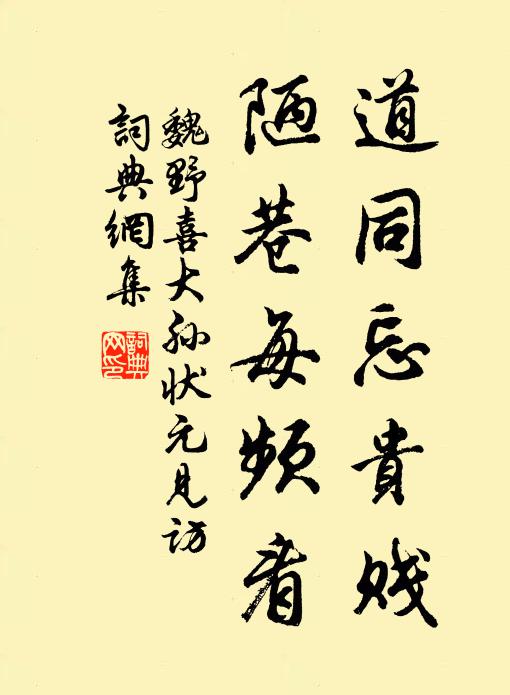 道同忘貴賤
陋巷每頻看
魏野喜大孙状元見訪
詞典網集
詞典網印